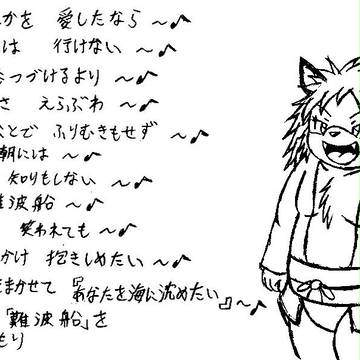 かを 愛したなら ～♪
は 行けない ～♪
つづけるより ～♪
さ えふぶわ ～♪
とで ふりむきもせず ～♪
朝には ～♪
知りもしない ～♪
難波船 ～♪
笑われても ～♪
かけ 抱きしめたい ～♪
まかせて 『あなたを海に沈めたい』～♪
「難波船」を
もり